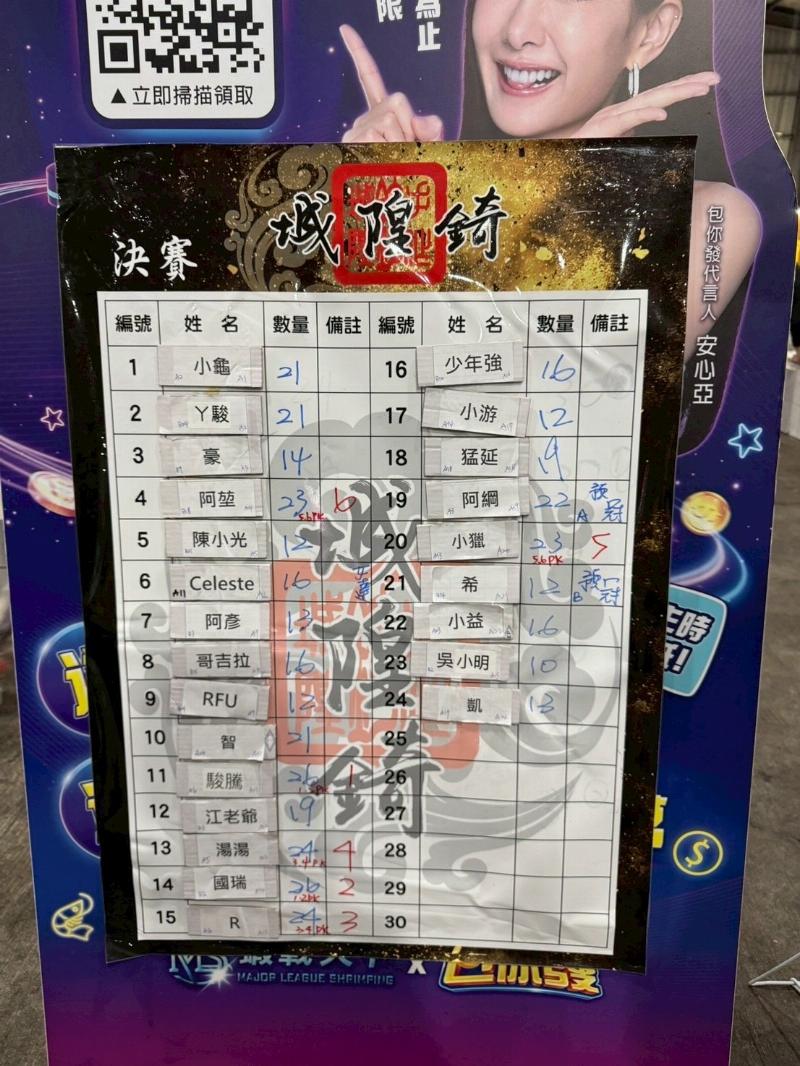 為止
限
▲立即掃描領取
城隍錡
決賽
包你發代言人 安心亞
編號 姓名 數量 備註 編號 姓名 數量 備註
1 小龜 21 16 少年強 16
2 丫駿 21 17 小游 12
3 豪 14 18 猛延
4 阿堃 23 5.6PK 6 19 阿綱 22 A 預冠
5 陳小光 12 20 小獵 23 5.6PK 5
6 Celeste 16 21 希 12 B 預冠
7 阿彥 13 22 小益 16
8 哥吉拉 16 23 吳小明 10
9 RFU 12 24 凱 13
10 智 21 25
11 駿騰 26 1.2PK 1 26
12 江老爺 19 27
13 湯湯 24 3.4PK 4 28
14 國瑞 26 1.2PK 2 29
15 R 24 3.4PK 3 30
城隍錡
MAJOR LEAGUE SHRIMPING x 包你發